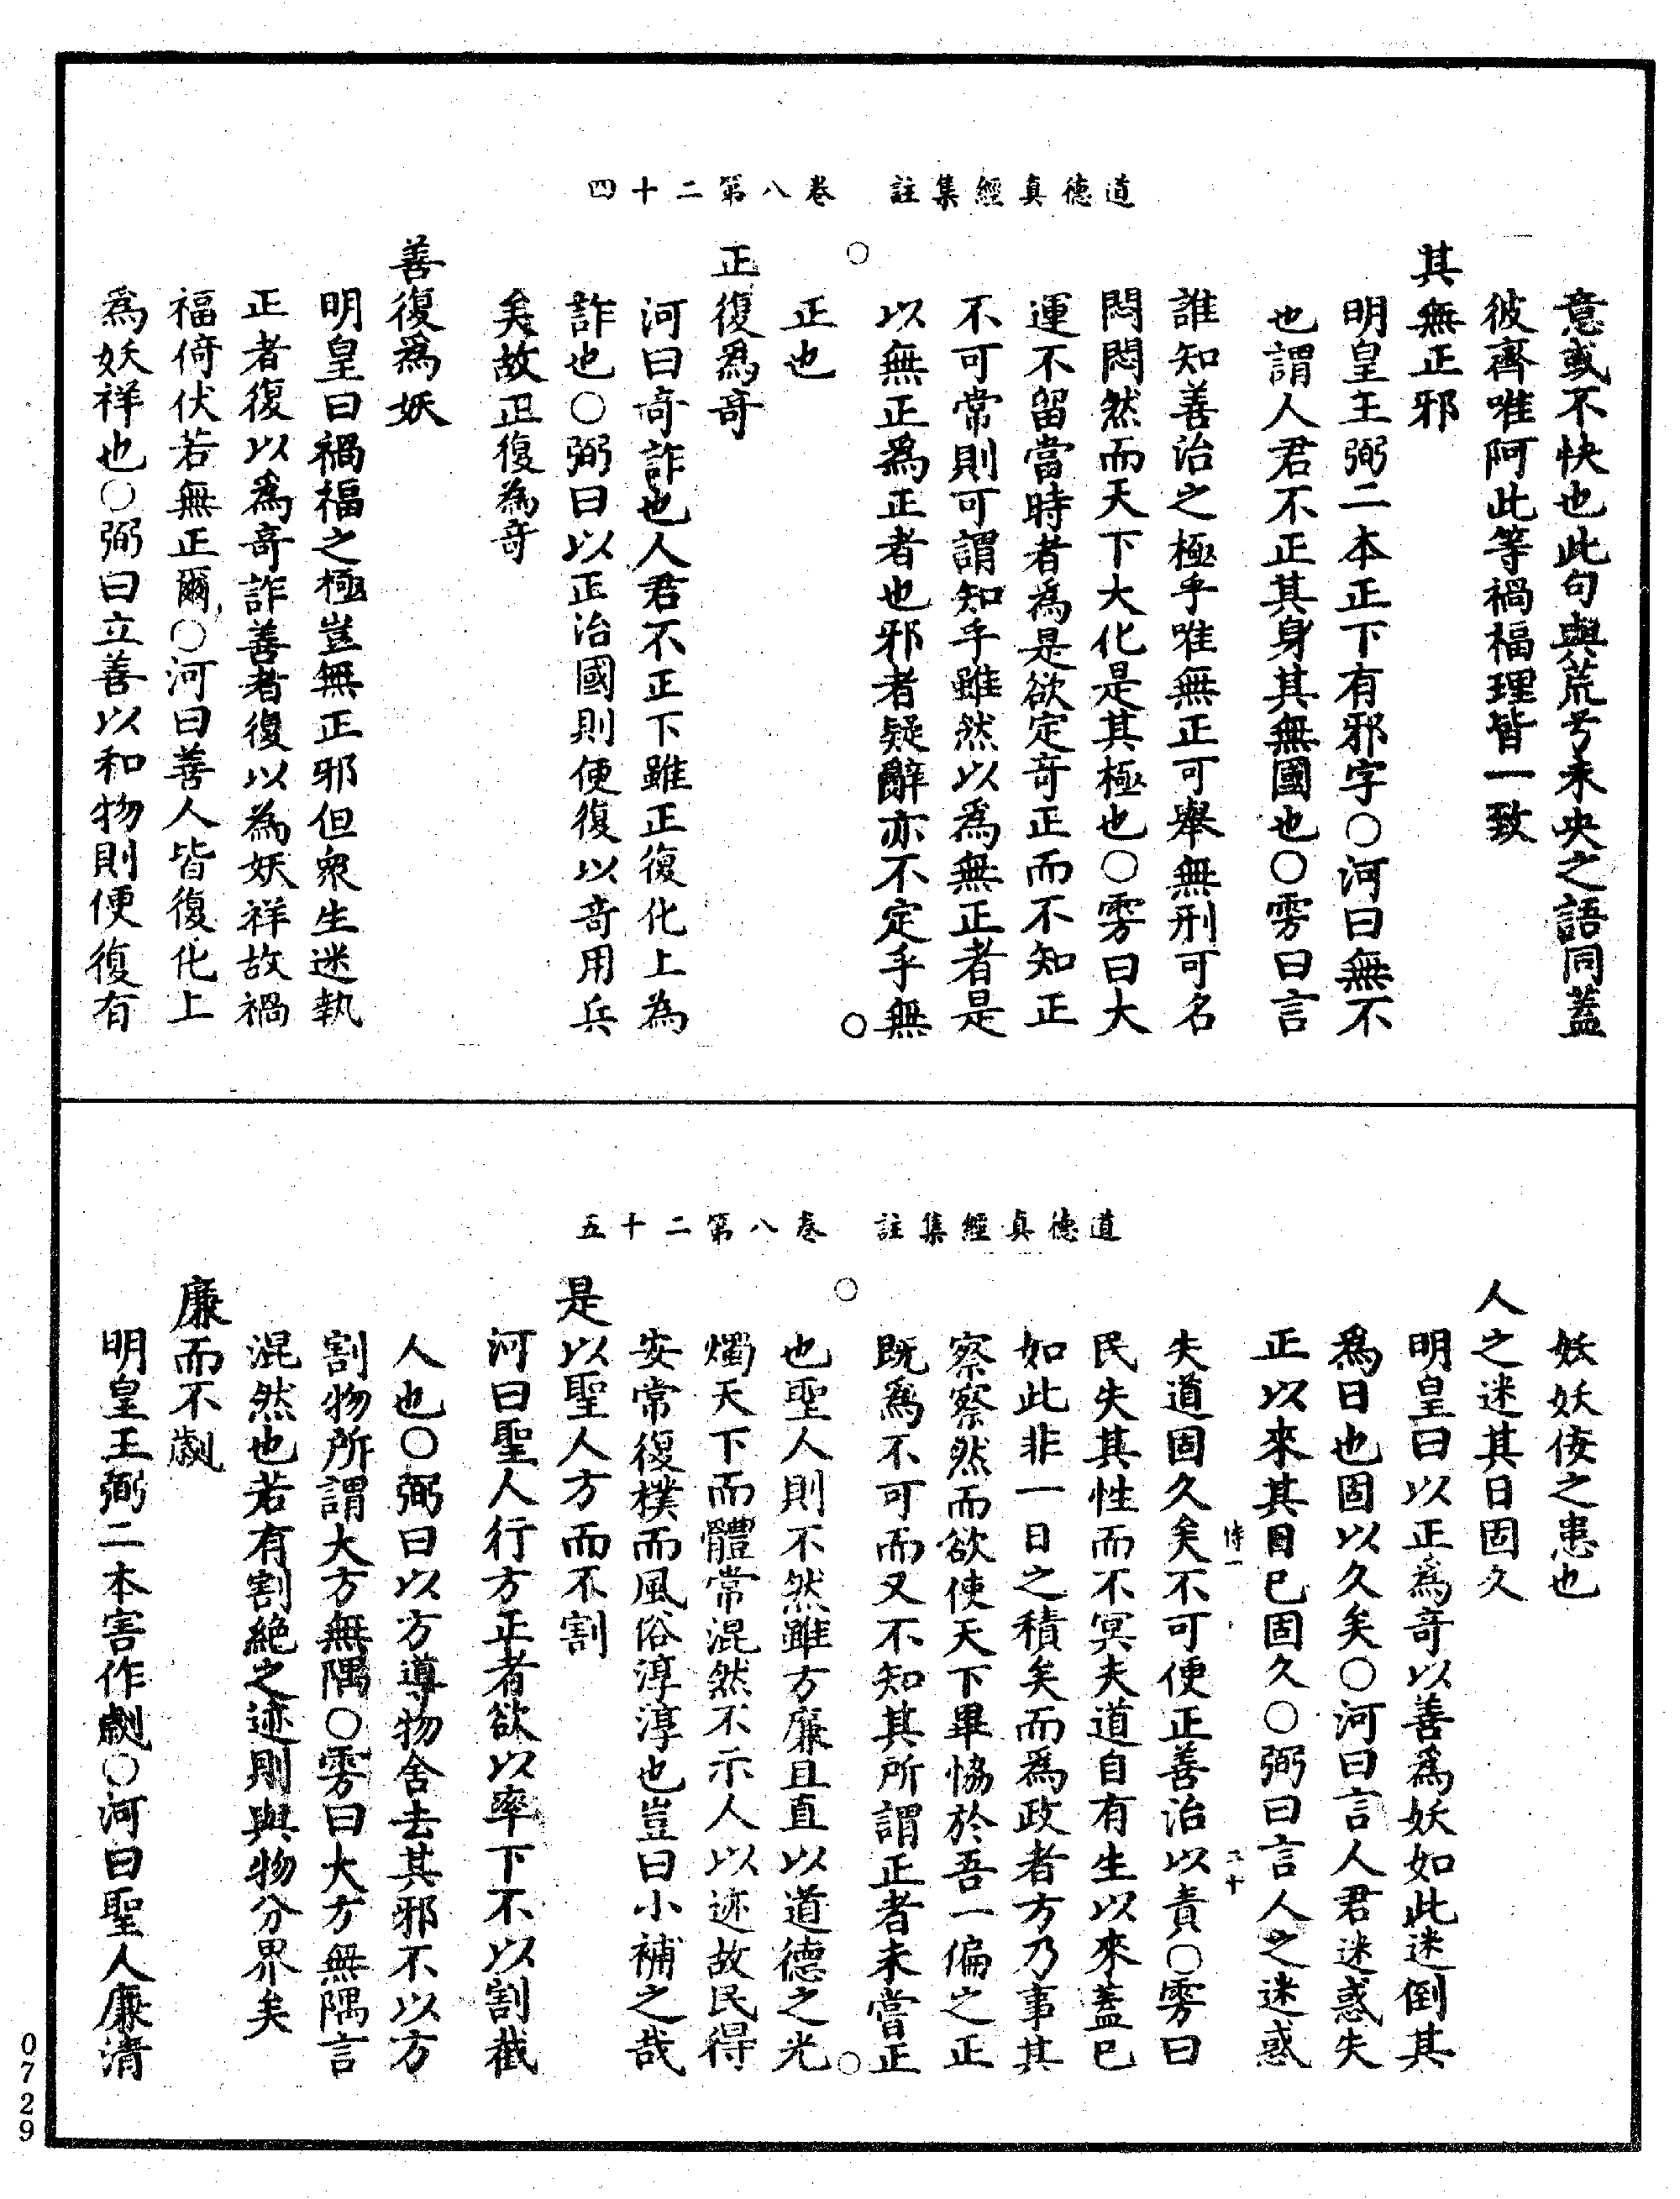 道德真經集註　卷八第二十四
意或不快也此句與荒兮未央之語同蓋
彼齊唯阿此等禍福理皆一致
其無正邪
明皇王弼二本正下有邪字○河曰無不
也謂人君不正其身其無國也○雱曰言
誰知善治之極乎唯無正可舉無刑可名
悶悶然而天下大化是其極也○雱曰大
運不留當時者為是欲定奇正而不知正
不可常則可謂知乎雖然以為無正者是
以無正為正者也邪者疑辭亦不定乎無
正也
正復為奇
河曰奇詐也人君不正下雖正復化上為
詐也○弼曰以正治國則便復以奇用兵
矣故正復為奇
善復為妖
明皇曰禍福之極豈無正邪但眾生迷執
正者復以為奇詐善者復以為妖祥故禍
福倚伏若無正爾○河曰善人皆復化上
為妖祥也○弼曰立善以和物則便復有
道德真經集註　卷八第二十五
妖妖佞之患也
人之迷其日固久
明皇曰以正為奇以善為妖如此迷倒其
為日也固以久矣○河曰言人君迷惑失
正以來其日已固久○弼曰言人之迷惑
失道固久矣不可便正善治以責○雱曰
民失其性而不冥夫道自有生以來蓋已
如此非一日之積矣而為政者方乃事其
察察然而欲使天下畢恊於吾一偏之正
既為不可而又不知其所謂正者未嘗正
也聖人則不然雖方廉且直以道德之光
燭天下而體常混然不示人以迹故民得
安常復樸而風俗淳淳也豈曰小補之哉
是以聖人方而不割
河曰聖人行方正者欲以率下不以割截
人也○弼曰以方導物舍去其邪不以方
割物所謂大方無隅○雱曰大方無隅言
混然也若有割絕之迹則與物分界矣
廉而不劌
明皇王弼二本害作劌○河曰聖人廉清
0729